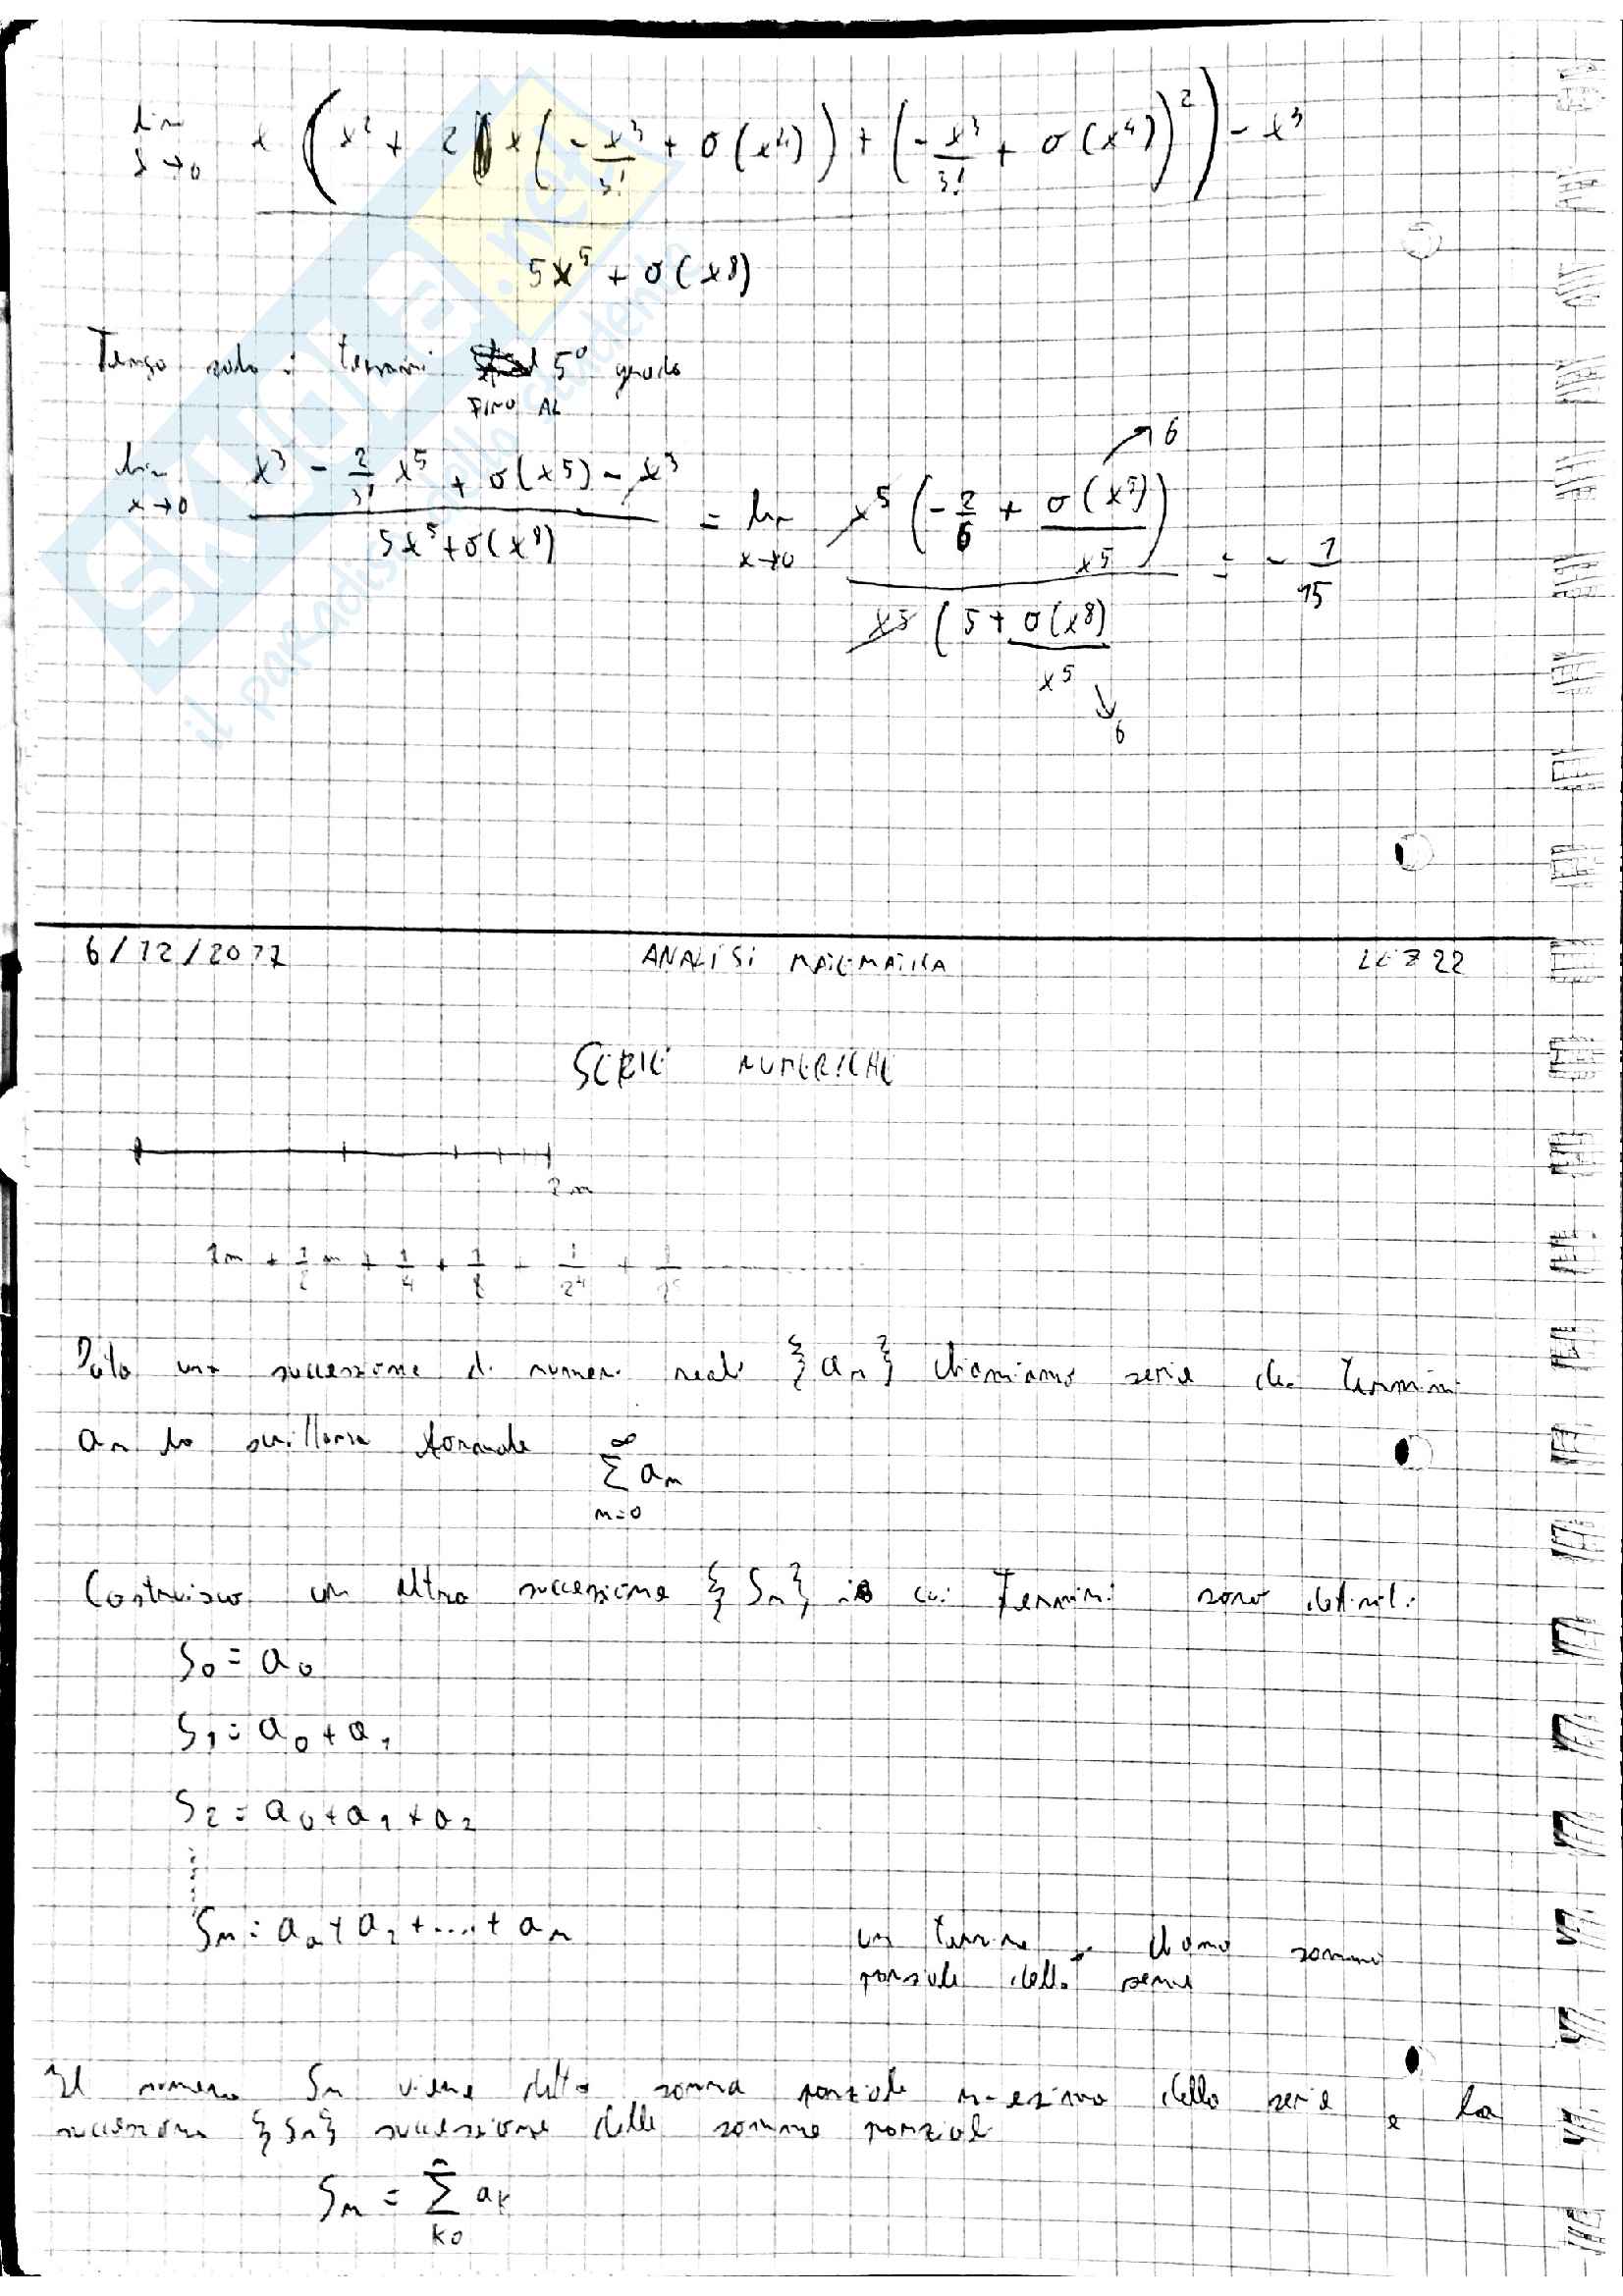 lim x→0 x ( x² + 2 x ( - x³/3! + o(x⁴) ) + ( - x³/3! + o(x⁴) )² ) - x³
5x⁵ + o(x⁸)
Tengo solo i termini 5° grado
FINO AL
lim x→0 x³ - 2/3! x⁵ + o(x⁵) - x³ / 5x⁵ + o(x⁸) = lim x→0 x⁵ ( - 2/6 + o(x⁵)/x⁵ ) → 6 / x⁵ ( 5 + o(x⁸)/x⁵ → 6 = - 1/15
6/12/2017 ANALISI MATEMATICA LEZ 22
SERIE NUMERICHE
2m
1m + 1/2 m + 1/4 + 1/8 + 1/2⁴ + 1/2⁵ ..........
Data una successione di numeri reali {an} chiamiamo serie dei termini
an la scrittura formale ∞ Σ an n=0
Costruisco un altra successione {Sn} i cui termini sono definiti:
S₀ = a₀
S₁ = a₀ + a₁
S₂ = a₀ + a₁ + a₂
Sn = a₀ + a₁ + .... + an un termine chiamo somma
parziale della serie
Il numero Sn viene detto somma parziale n-esima della serie e la
successione {Sn} successione delle somme parziali
Sn = n Σ ak k0
Skuola.net
il paradiso dello studente